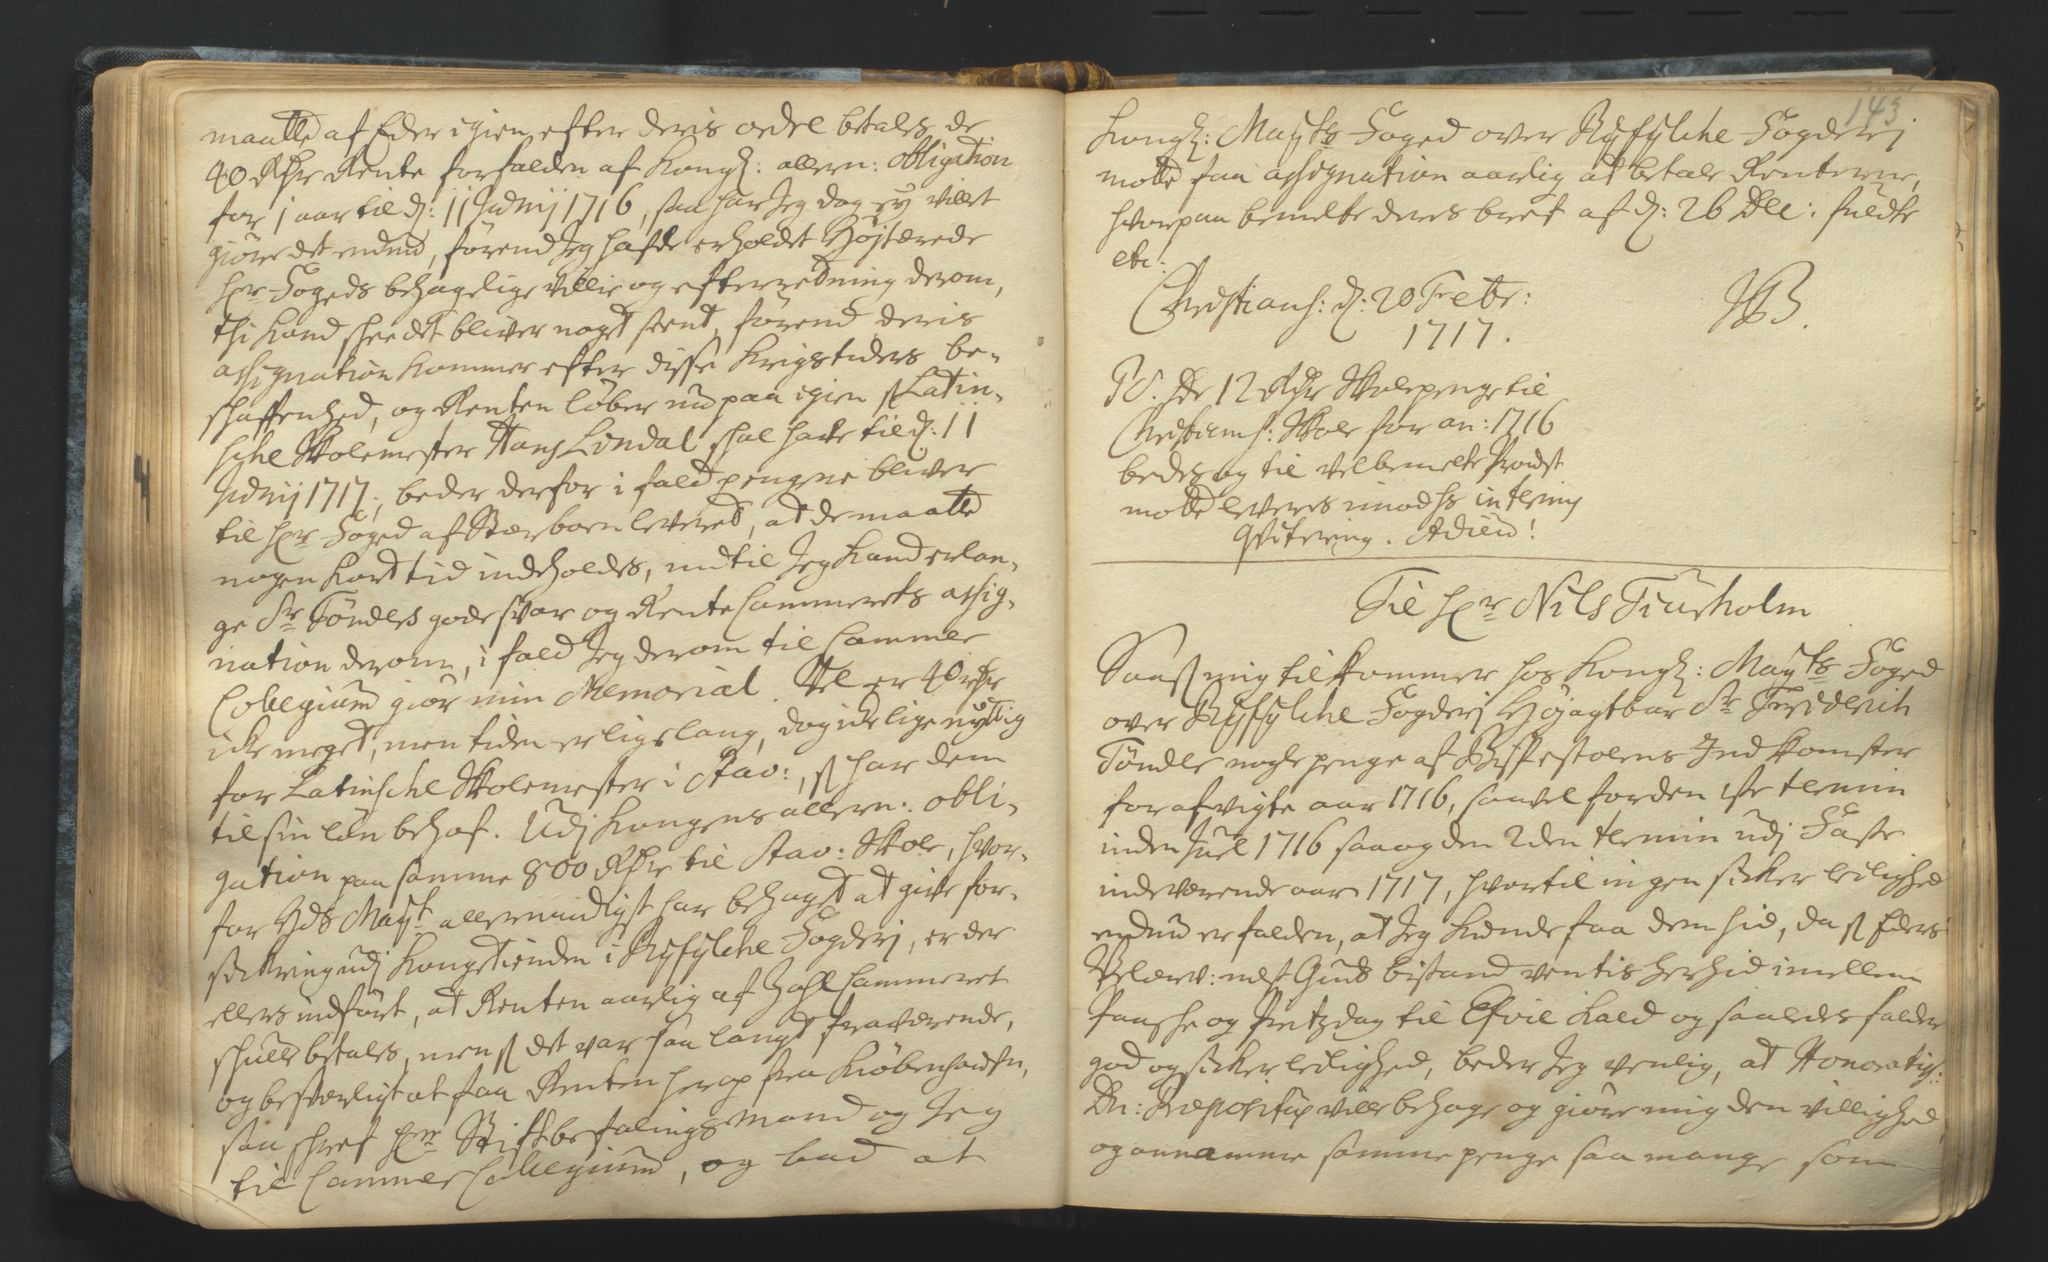 maatte af Eder igien efter deris ordre betales de
40 Rdr Rente forfalden af Kongl: allern: obligation
for 1 aar til d: 11 Junij 1716, saa har Jeg dog ey villet
giøre det endnu, førend Jeg hafde erholdet Højtærede
Hr Fogeds behagelige villie og efterretning derom,
thi kand skee det bliver noget seent, førend deris
assignation kommer efter disse Krigstiders be-
schaffenhed, og Renten løber nu paa igien s Latin-
sche Skolemester Hans Lindal skal have til d: 11
Junij 1717, beder derfor i fald pengene bliver
til Hr Foged af Kierboen leveret, at de maatte
nogen kort tid indeholdes, indtil Jeg kand erlan-
ge Sr Tønders gode svar og Rente Cammerets assig-
nation derom, i fald Jeg derom til Cammer
Collegium giør min Memorial. Vel er 40 rdr
icke meget, men tiden er lige lang, dog icke lige nyttig
for Latinsche Skolemester i Stav:, s har dem
til sin løn behof. Udj Kongens allern: obli-
gation paa samme 800 Rdr til Stav: Skole, hvor-
for Hds Mayt allernaadigst har behaget at give for-
sikring udj Kongetienden i Ryfylche Fogderj, er der
ellers indført, at Renten aarlig af Zahl Cammeret
skulle betales, men s det var saa langt fraværende,
og besværligt at faa Renten herop fra Kiøbenhavfn,
saa skref Hr Stiftbefalings Mand og Jeg
til Cammer Collegium, og bad at
143
Kongl: Mayts Foged over Ryfylche Fogderj
motte faa assignation aarlig at betale Renterne,
hvorpaa bemelte deres bref af d: 26 Dec: fuldte
etc:
Christians: d: 20 Febr:
1717.
JB.
PS. De 12 Rdr Skolepenge til
Christians: Skole for an: 1716
bedes og til velbemelte Provst
motte leveres imod hs interims
Qvitering. Adieu!
Til Hr Nils Tiusholm
Saas mig tilkommer hos Kongl: Mayts Foged
over Ryfylche Fogderj Højagtbar Sr Friderich
Tønder nogle penge af Bispestolens Indkomster
for afvigte aar 1716, saavel for den 1ste termin
inden Juel 1716 saa og den 2den termin udj Faste
indeværende aar 1717, hvortil ingen sicker leilighed
endnu er falden, at Jeg kunde faa dem hid, da s Eders
Velærv: næst Guds bistand ventis her hid imellem
Paasche og Pintzdag til Efvie kald og saaledes falder
god og sicker leilighed, beder Jeg venlig, at Honoratis:
Dn: Præpositus ville behage og giøre mig den villighed,
og annamme samme penge saa mange som